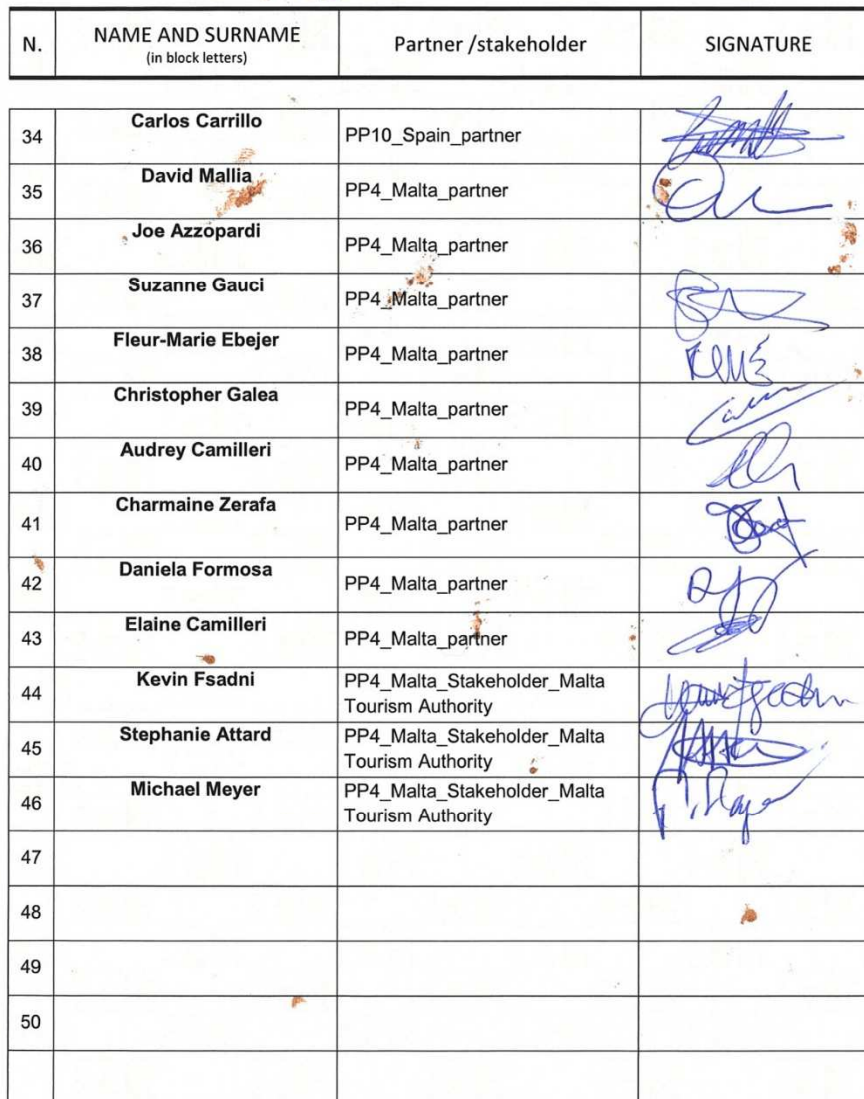 N. NAME AND SURNAME Partner /stakeholder SIGNATURE
(in block letters)
34 Carlos Carrillo PP10_Spain_partner
35 David Mallia PP4_Malta_partner
36 Joe Azzopardi PP4_Malta_partner
37 Suzanne Gauci PP4_Malta_partner
38 Fleur-Marie Ebejer PP4_Malta_partner
39 Christopher Galea PP4_Malta_partner
40 Audrey Camilleri PP4_Malta_partner
41 Charmaine Zerafa PP4_Malta_partner
42 Daniela Formosa PP4_Malta_partner
43 Elaine Camilleri PP4_Malta_partner
44 Kevin Fsadni PP4_Malta_Stakeholder_Malta
Tourism Authority
45 Stephanie Attard PP4_Malta_Stakeholder_Malta
Tourism Authority
46 Michael Meyer PP4_Malta_Stakeholder_Malta
Tourism Authority
47
48
49
50